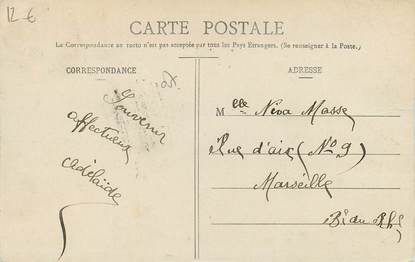 12 €
CARTE POSTALE
La Correspondance au recto n'est pas acceptée par tous les Pays Etrangers. (Se renseigner à la Poste.)
CORRESPONDANCE
Souvenir
affectueux
Adélaïde
ADRESSE
Melle Néva Masse
Rue d'aix (No 9)
Marseille
B. du Rh.